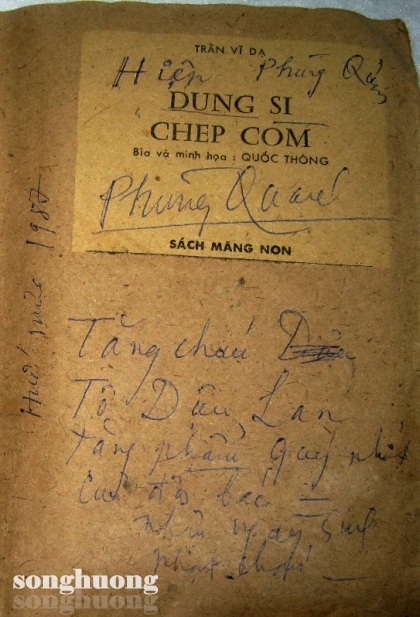 TRẦN VĨ DẠ
Hiện Phùng Quán
DUNG SI
CHEP COM
Bìa và minh họa : QUỐC THÔNG
Phùng Quán
SÁCH MĂNG NON
Huế 1987
Tặng cháu
Tô Diệu Lan
tặng phẩm quý nhất
của đời bác —
nhân ngày sinh
cháu
songhuong